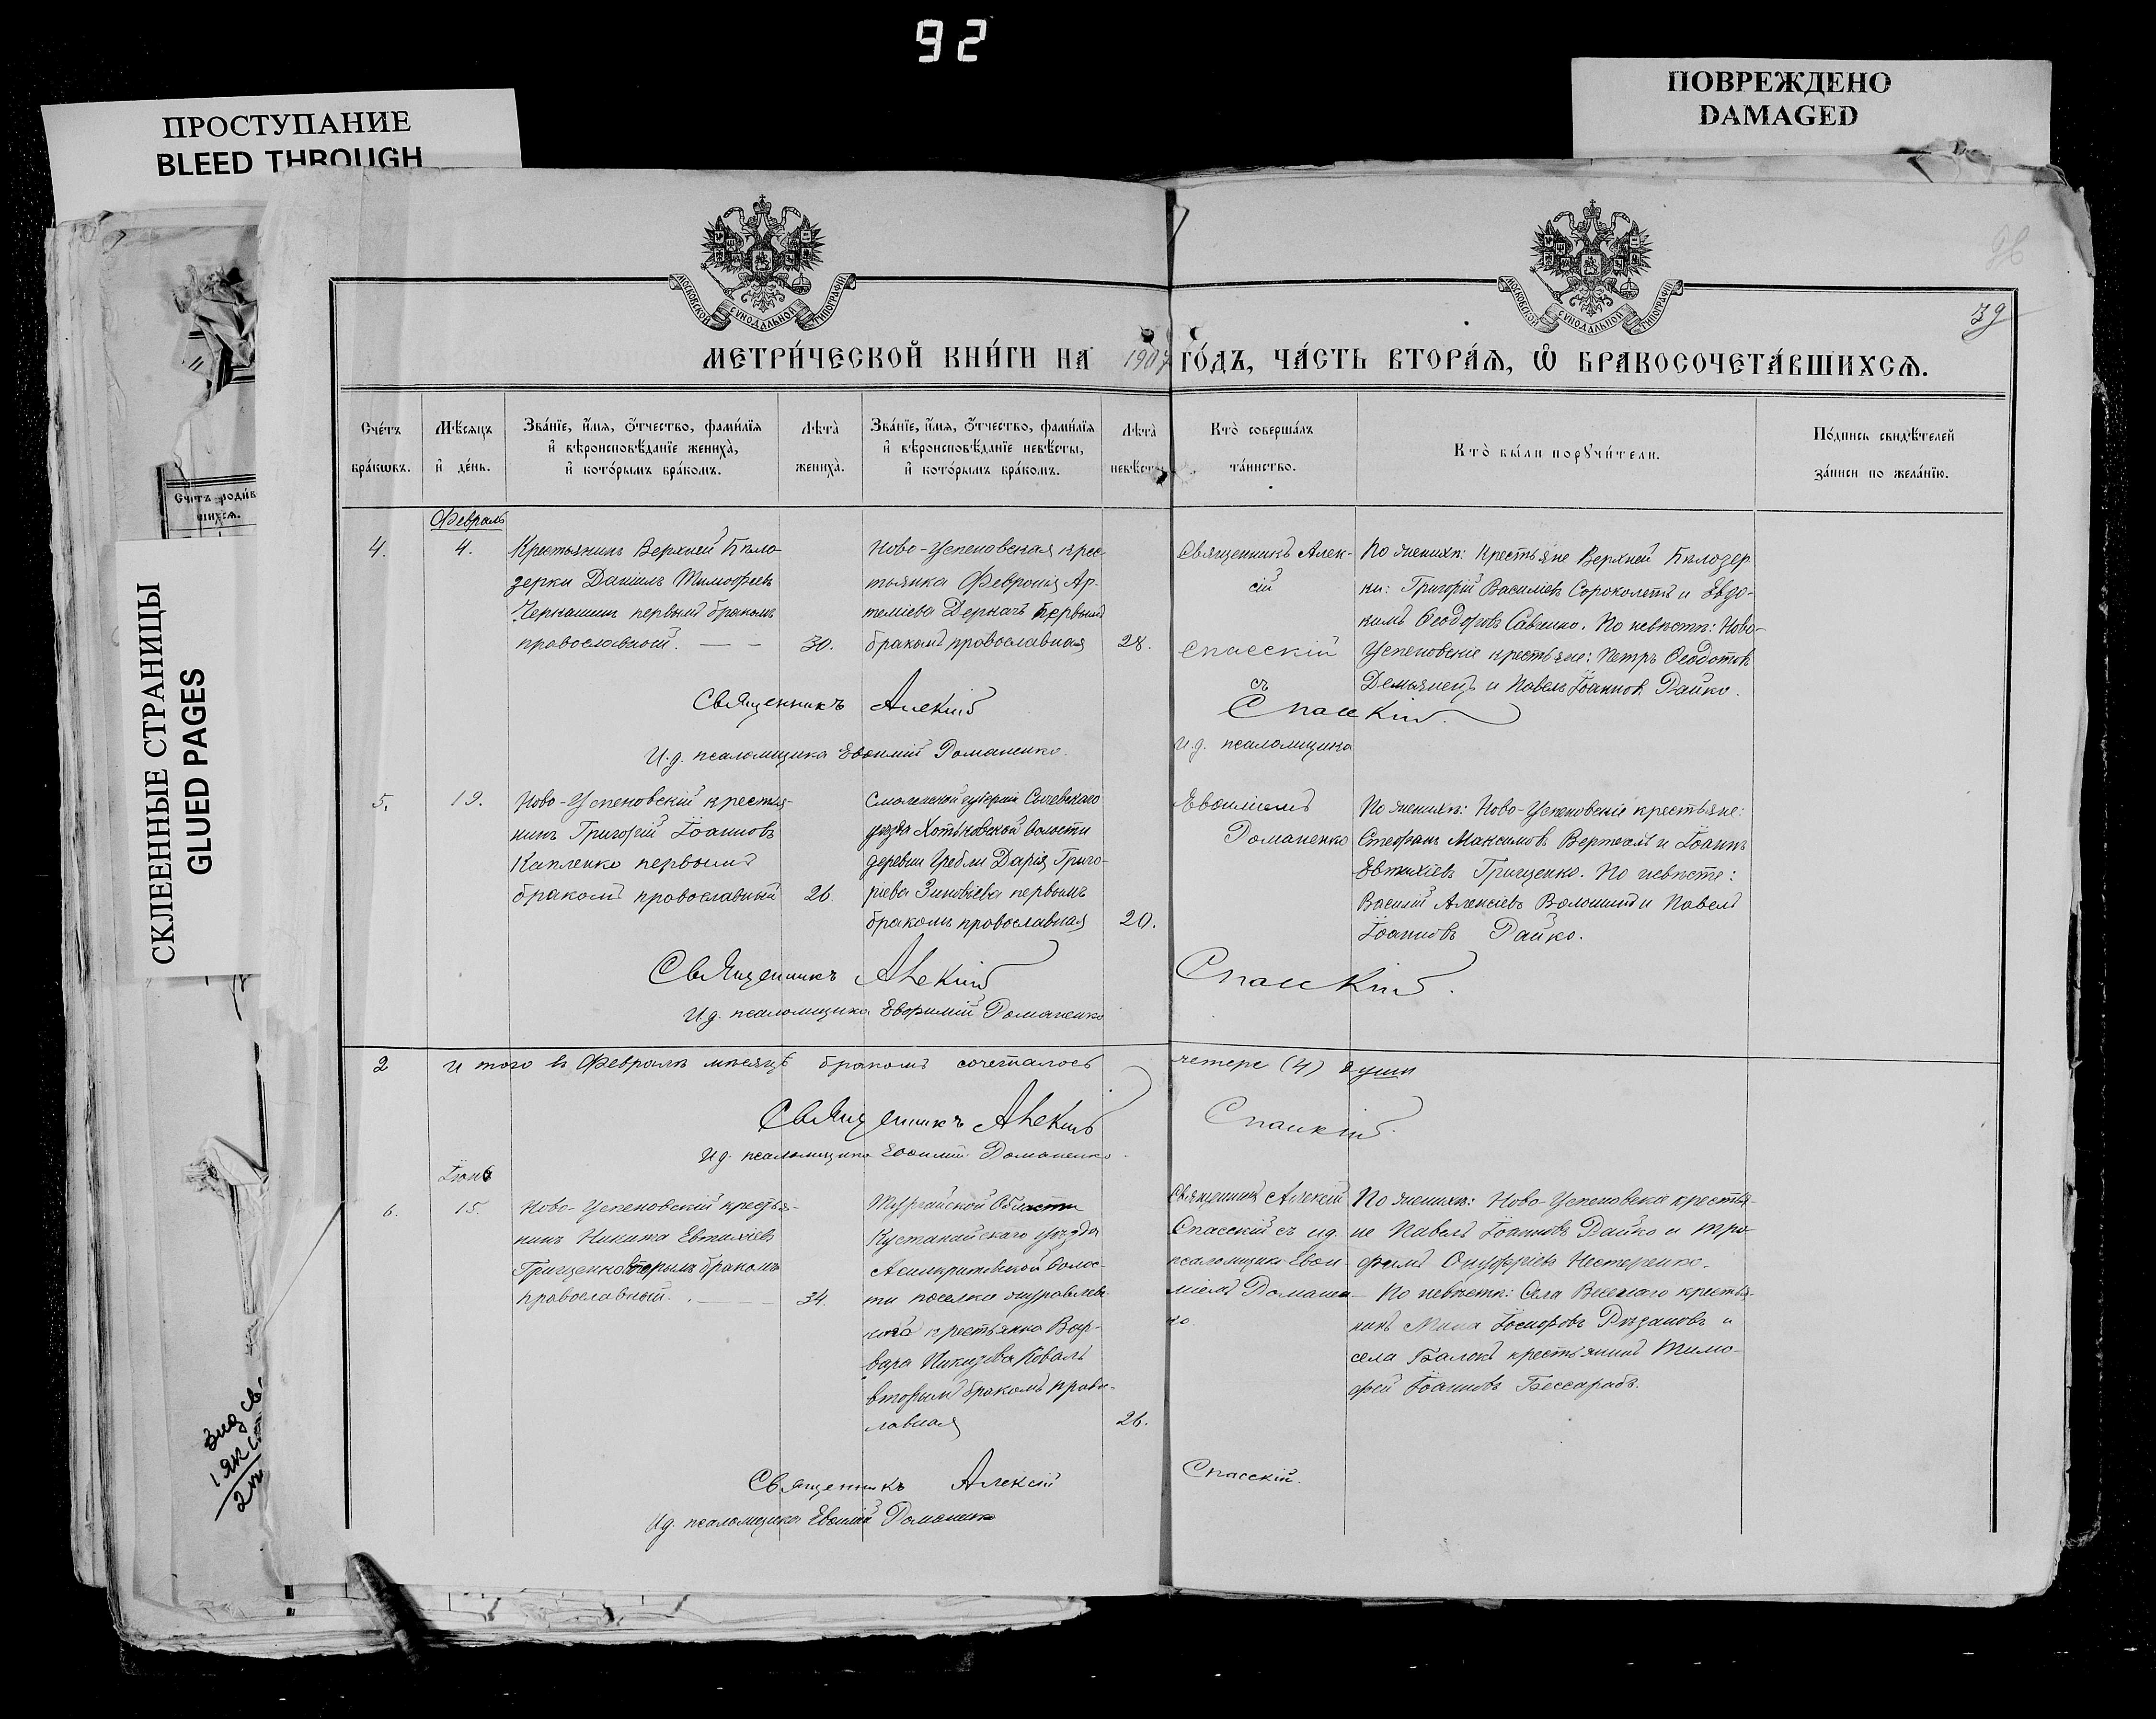 92
ПРОСТУПАНИЕ
BLEED THROUGH
ПОВРЕЖДЕНО
DAMAGED
СКЛЕЕННЫЕ СТРАНИЦЫ
GLUED PAGES
Счетъ родив
шихсѧ.
МОСКОВСКОЙ СѴНОДАЛЬНОЙ ТИПОГРАФІИ
МОСКОВСКОЙ СѴНОДАЛЬНОЙ ТИПОГРАФІИ
39
МЕТРИ́ЧЕСКОЙ КНИ́ГИ НА 1907 ГО́ДЪ, ЧА́СТЬ ВТОРА́Ѧ, Ѿ БРАКОСОЧЕТА́ВШИХСѦ.
Сче́тъ бра́кѡвъ.
Мѣ́сяцъ и҆ де́нь.
Зва́нїе, и҆́мя, ѻ҆́тчество, фами́лїя
и҆ вѣроисповѣ́данїе жениха̀,
и҆ кото́рымъ бра́комъ.
Лѣта̀ жениха̀.
Зва́нїе, и҆́мя, ѻ҆́тчество, фами́лїя
и҆ вѣроисповѣ́данїе невѣ́сты,
и҆ кото́рымъ бра́комъ.
Лѣта̀ невѣ́сты
Кто̀ соверша́лъ та́инство.
Кто̀ бы́ли порꙋчи́тели.
По́дпись свидѣ́телей
за́писи по жела́нїю.
Февраль
4.
4.
Крестьянинъ Верхней Бѣло-
зерки Данiилъ Тимофеевъ
Черкашинъ первымъ бракомъ
православный.
30.
Ново-Успеновская крес-
тьянка Февронія Ар-
теміева Деркачъ первымъ
бракомъ православная
28.
Священникъ Алек-
сій
Спасскій
съ
И.д. псаломщика
Евѳиміемъ
Романенко
По женихѣ: Крестьяне Верхней Бѣлозер
ки: Григорій Василіевъ Сороколетъ и Евдо-
кимъ Ѳеодоровъ Савченко. По невѣстѣ: Ново-
Успеновскіе крестьяне: Петръ Ѳеодотовъ
Демьянецъ и Павелъ Іоанновъ Райко.
Священникъ Алексій Спасскій.
И.д. псаломщика Евѳимій Романенко.
5.
19.
Ново-Успеновскій крестья-
нинъ Григорій Іоанновъ
Капленко первымъ
бракомъ православный
26.
Смоленской губерніи Сычевскаго
уѣзда Хотьковской волости
деревни Гребли Дарія Григо-
ріева Зиновіева первымъ
бракомъ православная
20.
По женихѣ: Ново-Успеновскіе крестьяне:
Стефанъ Максимовъ и Іоаннъ
Евтихіевъ Грищенко. По невѣсте:
Василій Алексіевъ Волошинъ и Павелъ
Іоанновъ Райко.
Священникъ Алексій Спасскій.
И.д. псаломщика Евфимій Романенко
2
И того въ Февралѣ мѣсяцѣ бракомъ сочеталось четере (4) души
Священникъ Алексій Спасскій.
И.д. псаломщика Евѳимій Романенко.
Іюнь
6.
15.
Ново-Успеновскій крестья-
нинъ Никита Евтихіевъ
Грищенко вторымъ бракомъ
православный.
34.
Тургайской Области
Кустанайскаго уѣзда
волос-
ти поселка
крестьянка Вар-
вара Коваль
вторымъ бракомъ право-
славная
26.
Священникъ Алексій
Спасскій съ и.д.
псаломщика Евѳи-
міемъ Романен-
ко.
По женихѣ: Ново-Успеновскіе крестья-
не Павелъ Іоанновъ Райко и Тро-
фимъ Онуфріевъ Нестеренко.
По невѣстѣ: Села Веселаго крестья-
нинъ Мина Іосифовъ и
села Балокъ крестьянинъ Тимо-
фей Іоанновъ Бессарабъ.
Священникъ Алексій Спасскій.
И.д. псаломщика Евѳимій Романенко